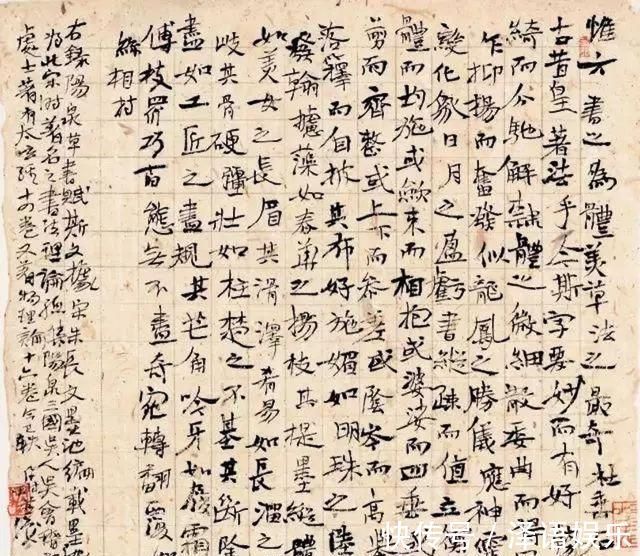 惟六書之為體美草法之最奇杜垂
古昔皇著法乎今斯字要妙而有好
綺而分馳解隸體之微細散委曲而
乍抑揚而奮發似龍鳳之騰儀應神
變化象日月之盈虧書縱疎而值立
體而均施或斂束而相抱或婆娑而四垂
剪而齊整或上下而參差或陰岑而高
落籜而自披其布好施媚如明珠之陸
發翰攄藻如春華之揚枝其提墨縱體
如美女之長眉其滑澤肴易如長溜之
歧其骨硬彊壯如柱礎之不基其斷除
盡如工匠之盡規其芒角吟牙如嚴霜
傅枝眾巧百態無不盡奇宛轉翻覆
絲相持
右錄陽泉草書賦斯文據宋朱長文墨池編載墨池
為北宋時著名之書法理論集陽泉三國吳人吳會稽
處士著有太玄經十四卷又著物理論十六卷今已軼
快传号／泽语娱乐